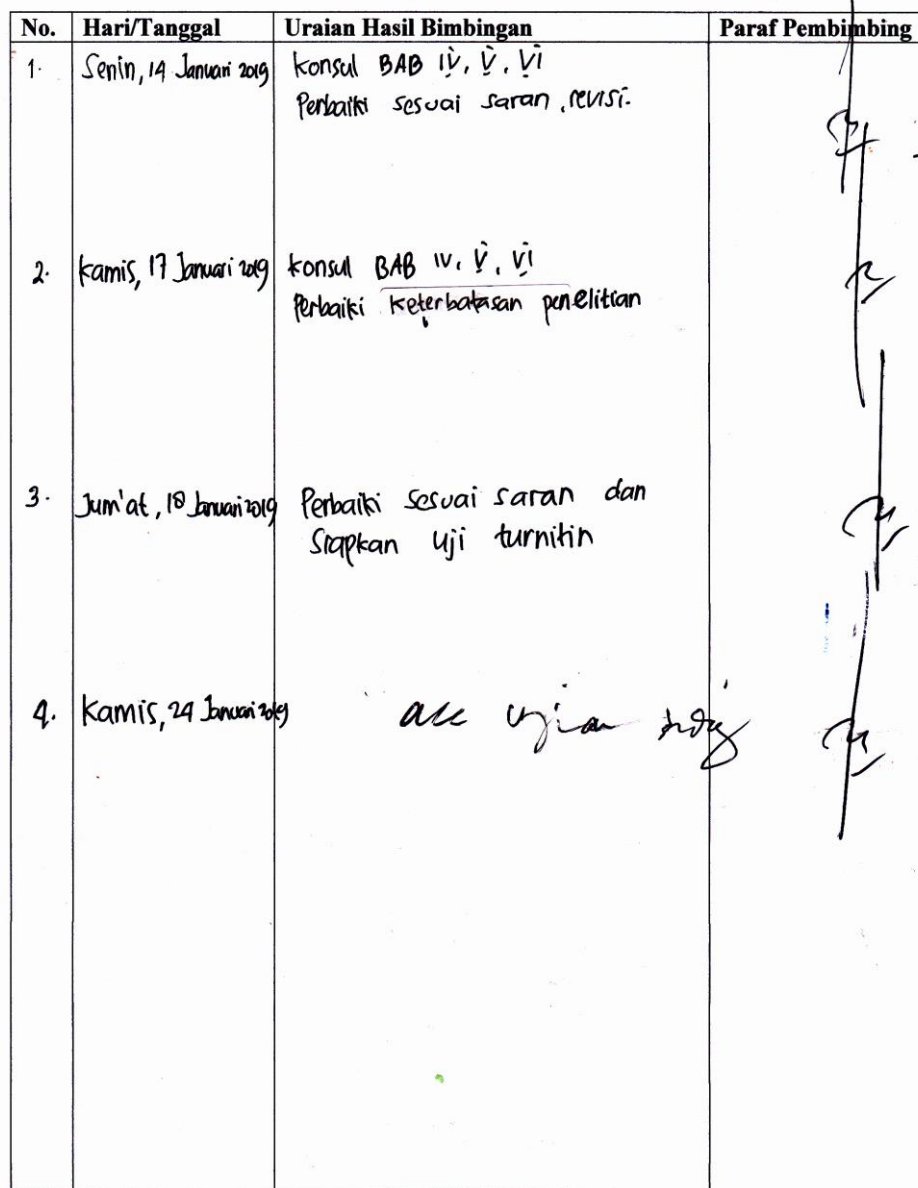 No. Hari/Tanggal Uraian Hasil Bimbingan Paraf Pembimbing
1. Senin, 14 Januari 2019 konsul BAB IV, V, VI
Perbaiki sesuai saran, revisi.
2. Kamis, 17 Januari 2019 konsul BAB IV, V, VI
Perbaiki keterbatasan penelitian
3. Jum'at, 18 Januari 2019 Perbaiki sesuai saran dan
siapkan uji turnitin
4. Kamis, 24 Januari 2019 acc ujian